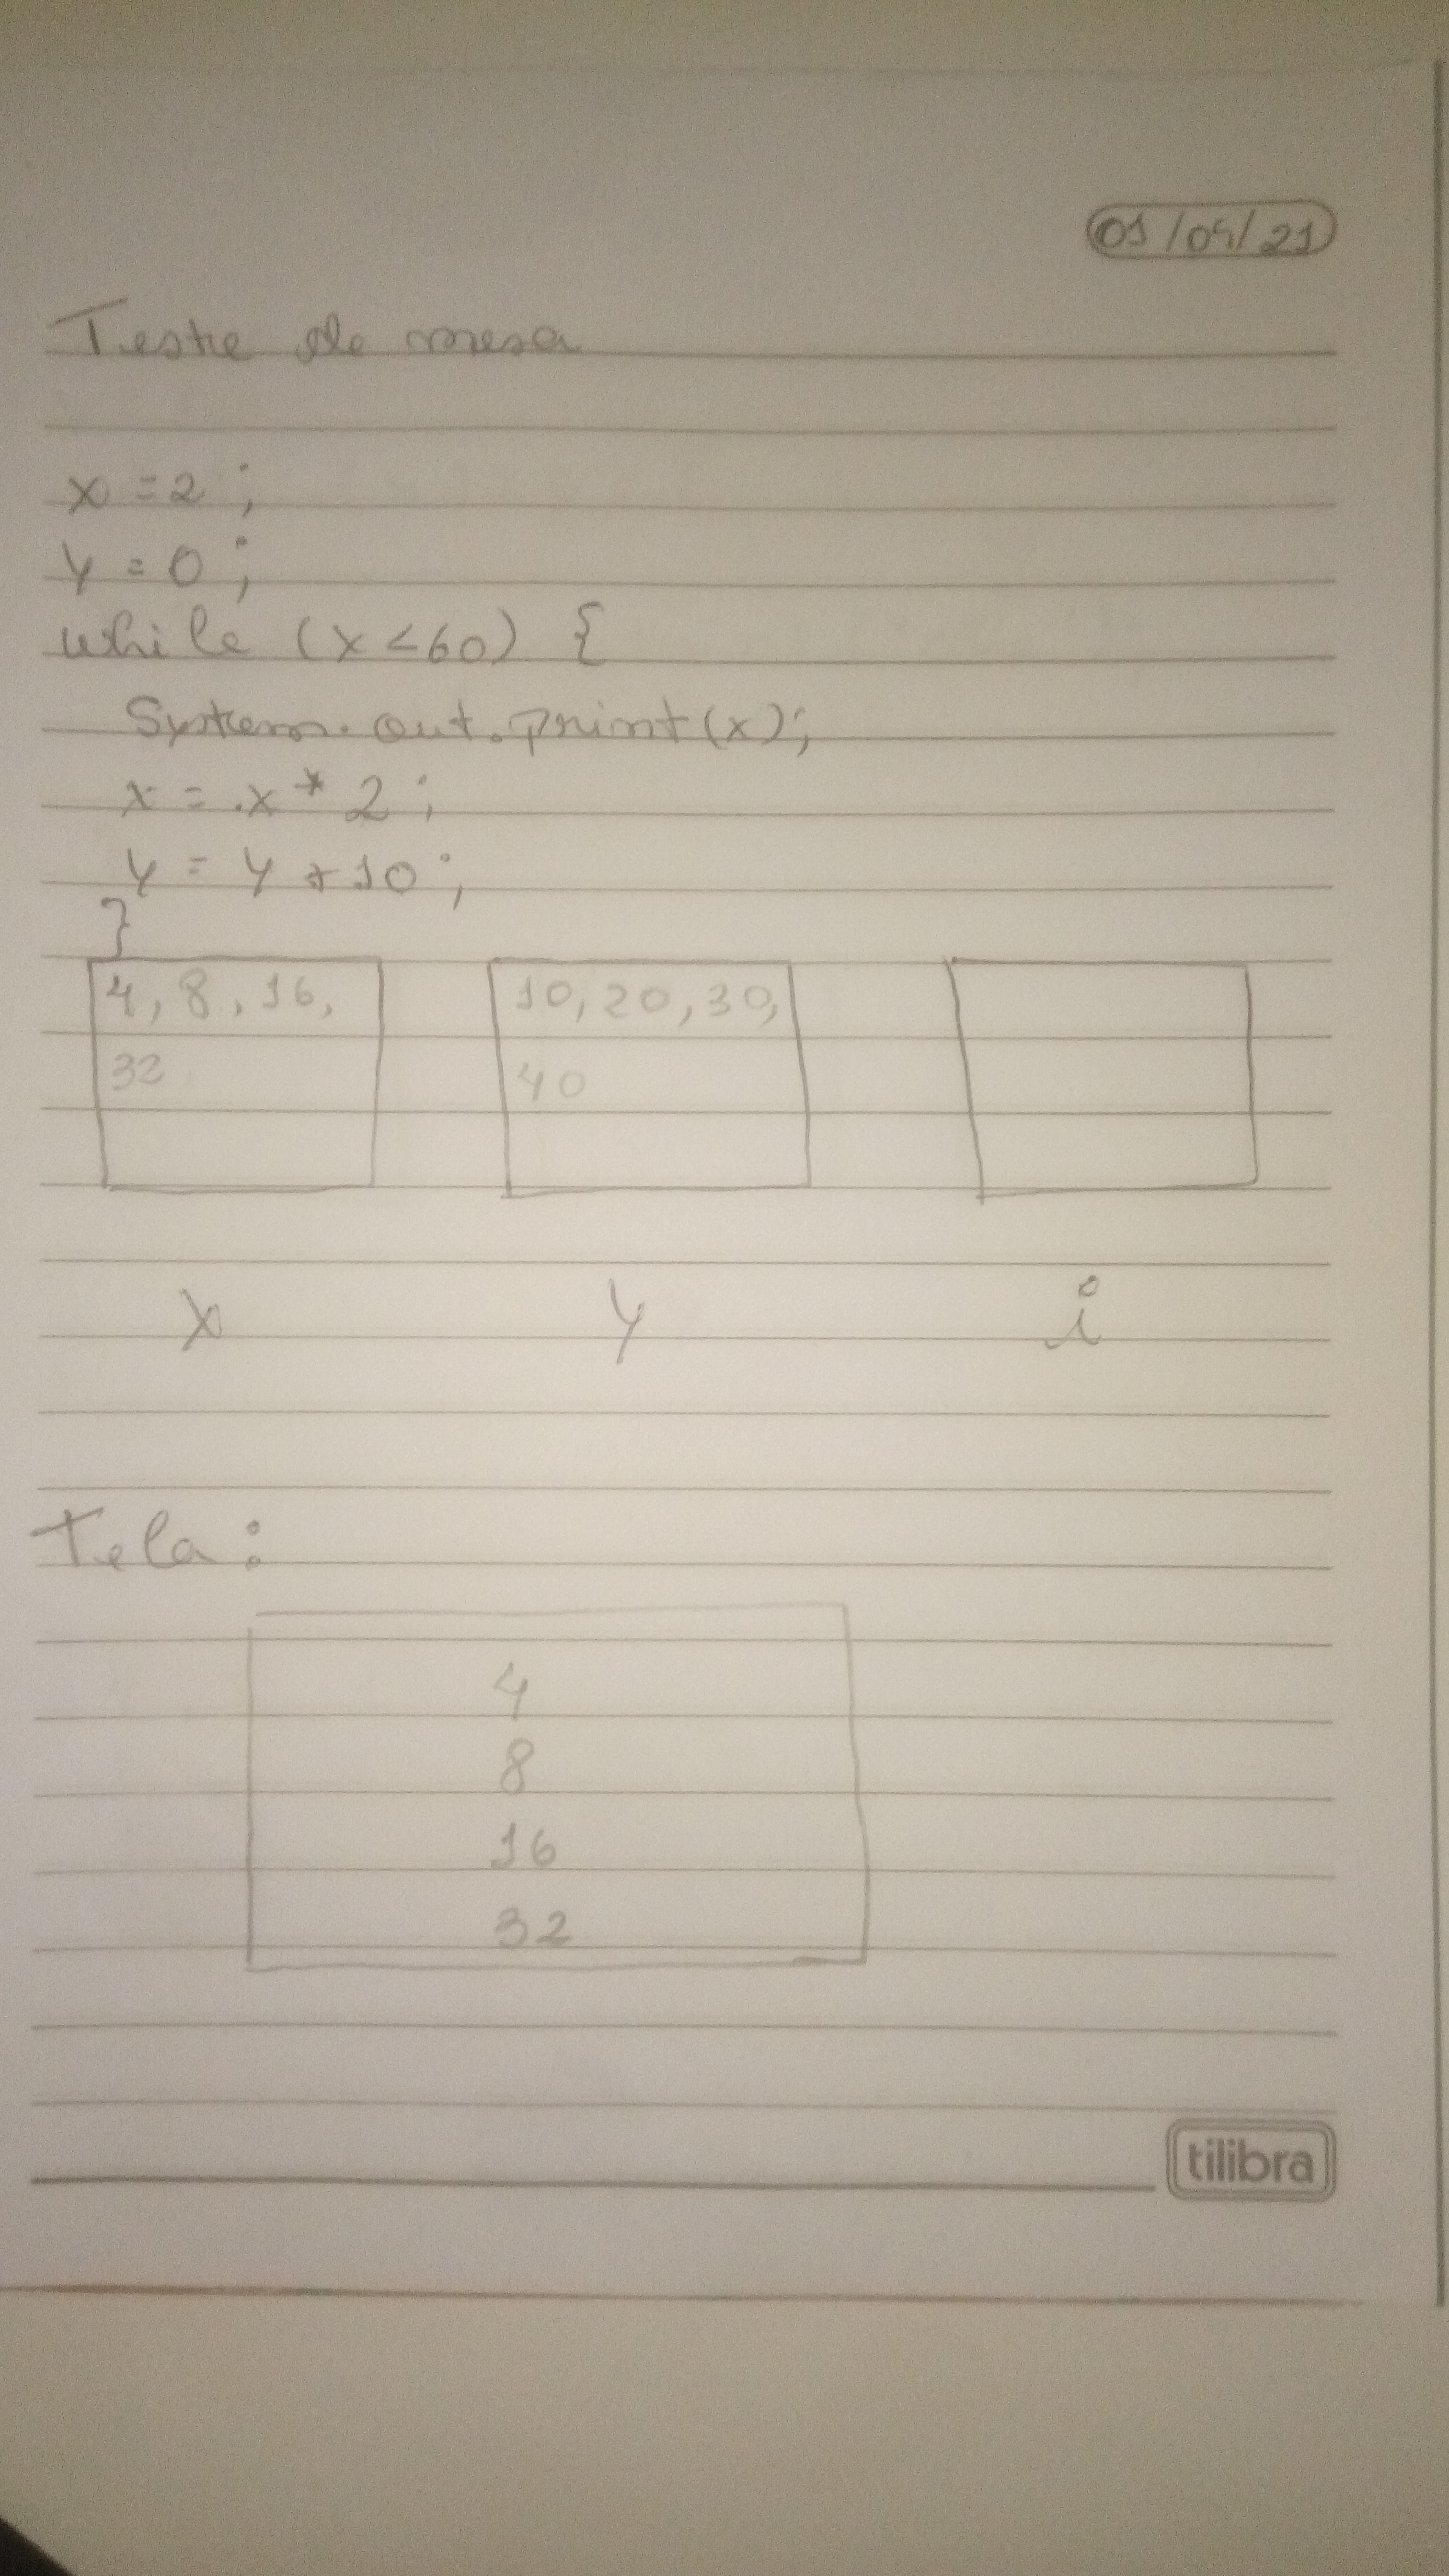 01/04/21
Teste de mesa
x = 2;
y = 0;
while (x < 60) {
System.out.print(x);
x = x * 2;
y = y + 10;
}
4, 8, 16, 10, 20, 30,
32 40
x y i
Tela:
4
8
16
32
tilibra